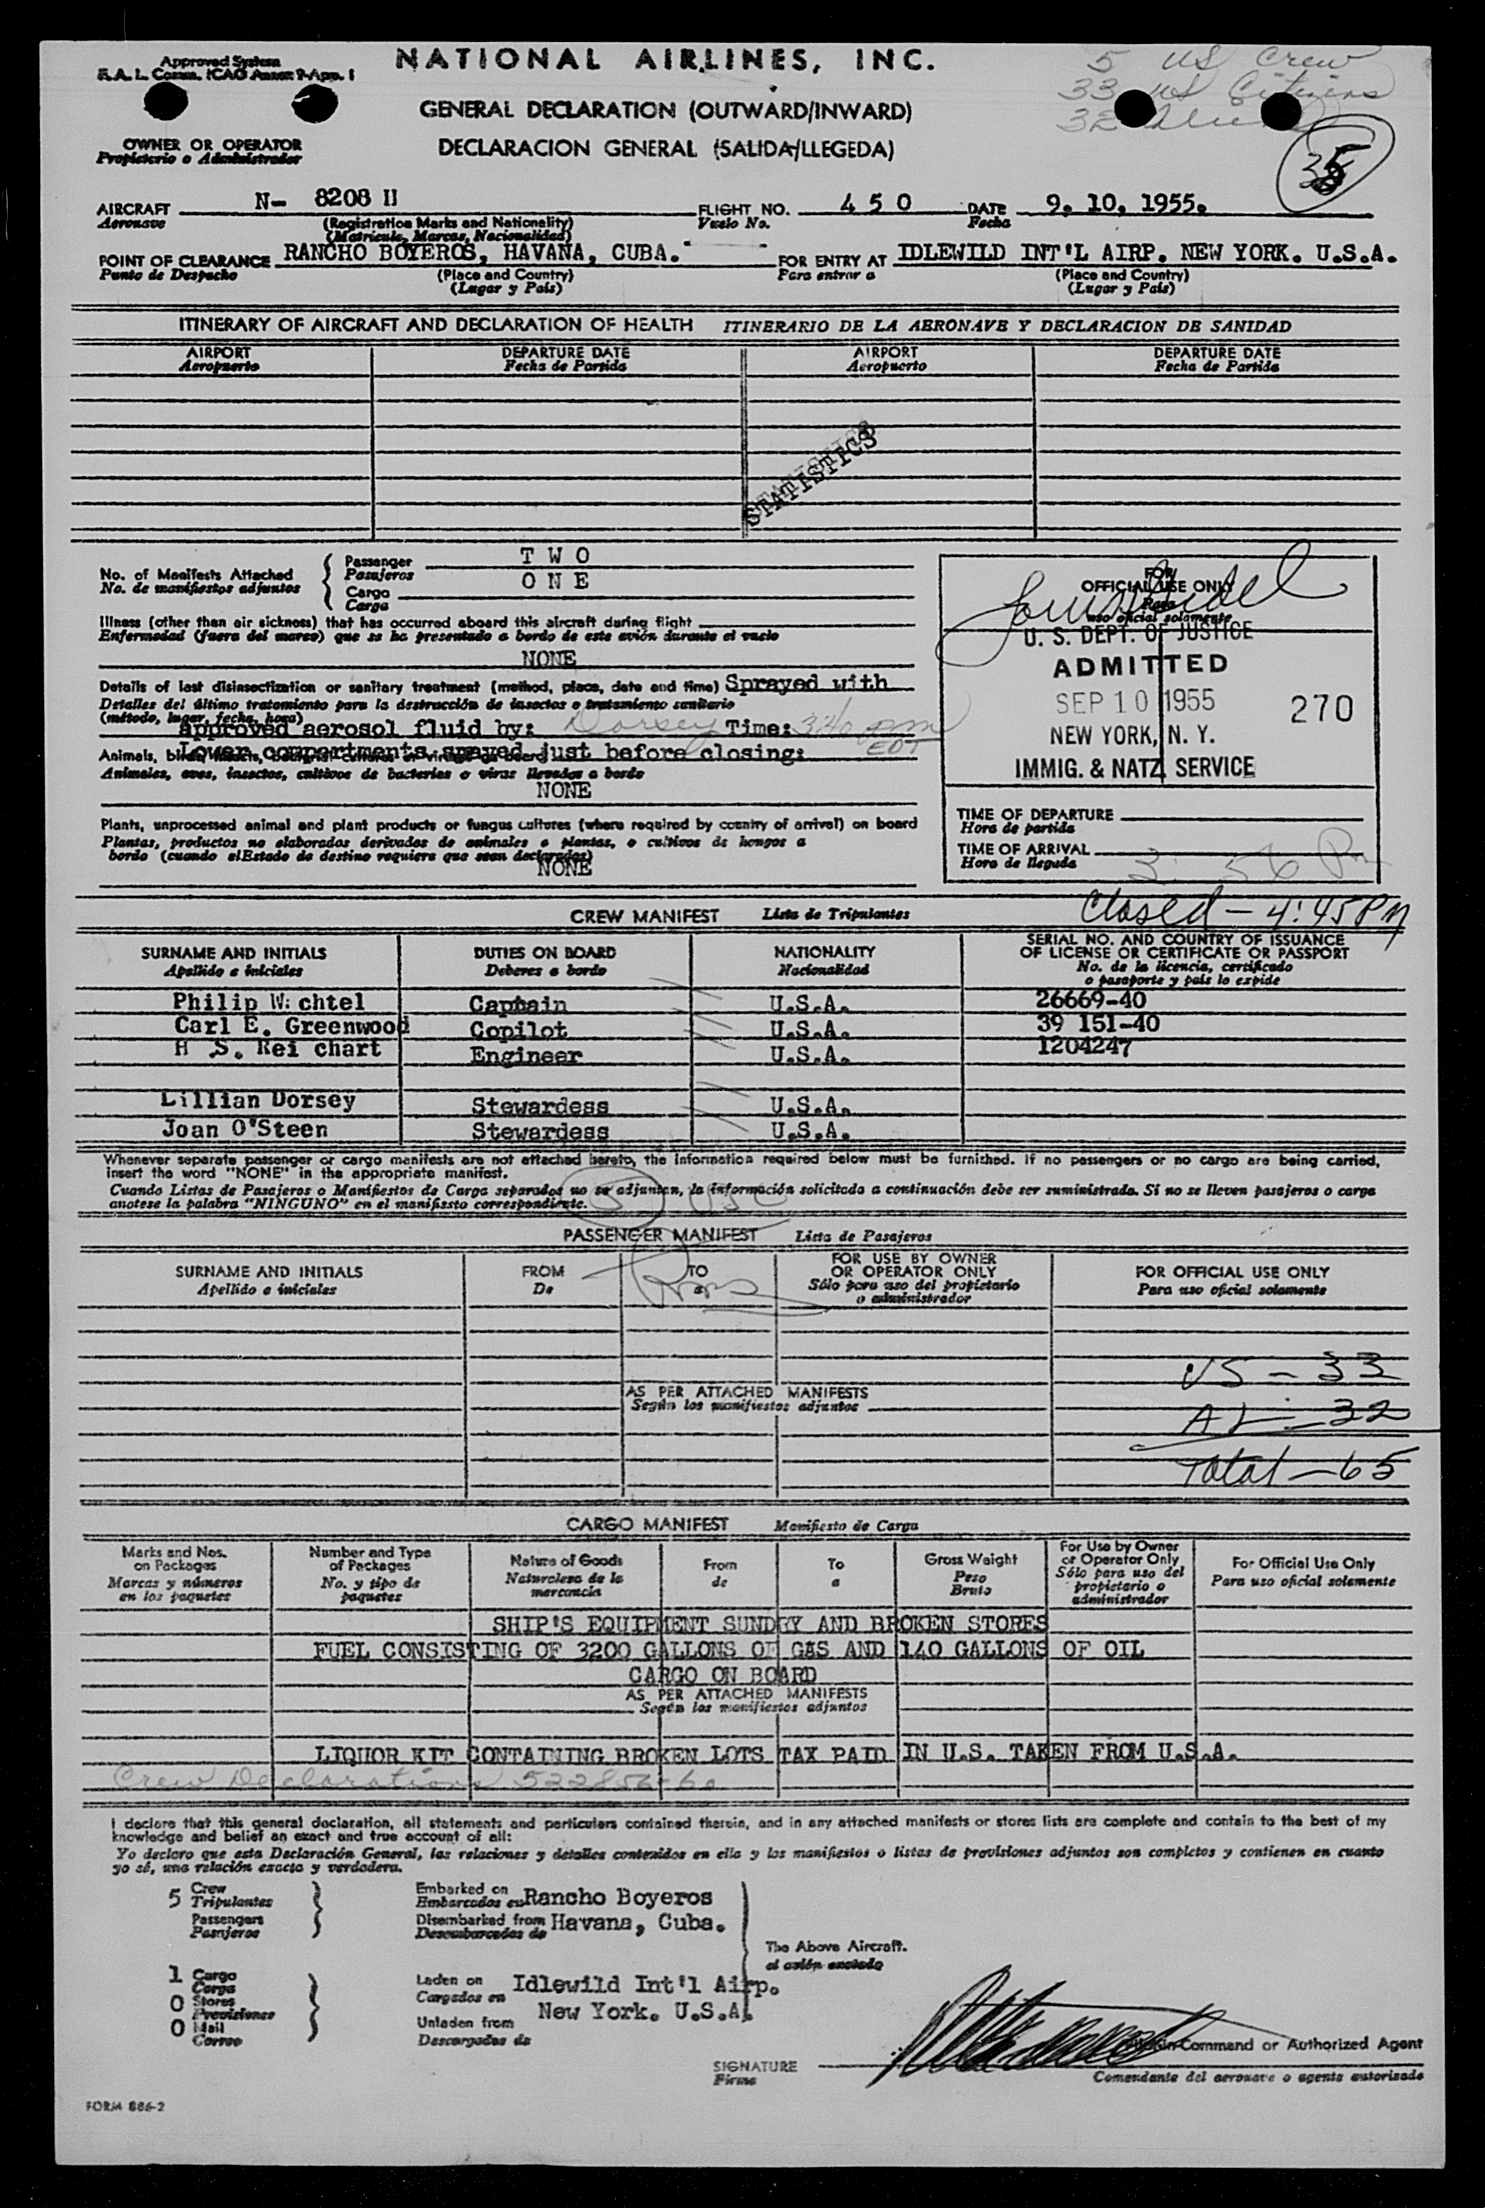 Approved System
E.A.L. Comm. ICAO Annex 9-App. 1
NATIONAL AIRLINES, INC.
5 US Crew
33 US Citizens
32
GENERAL DECLARATION (OUTWARD/INWARD)
OWNER OR OPERATOR
Propietario o Administrador
DECLARACION GENERAL (SALIDA/LLEGEDA)
AIRCRAFT N- 8208 H FLIGHT NO. 4 5 0 DATE 9. 10. 1955.
Aeronave (Registration Marks and Nationality) Vuelo No. Fecha
(Matricula, Marcas, Nacionalidad)
POINT OF CLEARANCE RANCHO BOYEROS, HAVANA, CUBA. FOR ENTRY AT IDLEWILD INT'L AIRP. NEW YORK. U.S.A.
Punto de Despacho (Place and Country) Para entrar a (Place and Country)
(Lugar y País) (Lugar y País)
ITINERARY OF AIRCRAFT AND DECLARATION OF HEALTH ITINERARIO DE LA AERONAVE Y DECLARACION DE SANIDAD
AIRPORT DEPARTURE DATE AIRPORT DEPARTURE DATE
Aeropuerto Fecha de Partida Aeropuerto Fecha de Partida
STATISTICS
No. of Manifests Attached Passenger T W O
No. de manifiestos adjuntos Pasajeros
Cargo O N E
Carga
FOR
OFFICIAL USE ONLY
Para
uso oficial solamente
Illness (other than air sickness) that has occurred aboard this aircraft during flight
Enfermedad (fuera del mareo) que se ha presentado a bordo de este avión durante el vuelo
NONE
U. S. DEPT. OF JUSTICE
ADMITTED
SEP 10 1955 270
NEW YORK, N. Y.
IMMIG. & NATZ. SERVICE
Details of last disinsectization or sanitary treatment (method, place, date and time) Sprayed with
Detalles del último tratamiento para la destrucción de insectos o tratamiento sanitario
(método, lugar, fecha, hora)
approved aerosol fluid by: Dorsey Time: 340 pm
EDT
Lower compartments sprayed just before closing:
Animals, birds, insects, bacterial cultures or viruses on board
Animales, aves, insectos, cultivos de bacterias o virus llevados a bordo
NONE
Plants, unprocessed animal and plant products or fungus cultures (where required by country of arrival) on board
Plantas, productos no elaborados derivados de animales o plantas, o cultivos de hongos a
bordo (cuando el Estado de destino requiera que sean declarados)
NONE
TIME OF DEPARTURE
Hora de partida
TIME OF ARRIVAL 3 56 Pm
Hora de llegada
Closed - 4:45 PM
CREW MANIFEST Lista de Tripulantes
SURNAME AND INITIALS DUTIES ON BOARD NATIONALITY SERIAL NO. AND COUNTRY OF ISSUANCE
Apellido e iniciales Deberes a bordo Nacionalidad OF LICENSE OR CERTIFICATE OR PASSPORT
No. de la licencia, certificado
o pasaporte y país lo expide
Philip W chtel Captain U.S.A. 26669-40
Carl E. Greenwood Copilot U.S.A. 39 151-40
H S. Rei chart Engineer U.S.A. 1204247
Lillian Dorsey Stewardess U.S.A.
Joan O'Steen Stewardess U.S.A.
Whenever separate passenger or cargo manifests are not attached hereto, the information required below must be furnished. If no passengers or no cargo are being carried,
insert the word "NONE" in the appropriate manifest.
Cuando Listas de Pasajeros o Manifiestos de Carga separados no se adjunten, la información solicitada a continuación debe ser suministrada. Si no se lleven pasajeros o carga
anotese la palabra "NINGUNO" en el manifiesto correspondiente.
5 USC
PASSENGER MANIFEST Lista de Pasajeros
SURNAME AND INITIALS FROM TO FOR USE BY OWNER FOR OFFICIAL USE ONLY
Apellido e iniciales De a OR OPERATOR ONLY Para uso oficial solamente
Sólo para uso del propietario
o administrador
US - 33
AS PER ATTACHED MANIFESTS
Según los manifiestos adjuntos
AL - 32
Total - 65
CARGO MANIFEST Manifiesto de Carga
Marks and Nos. on Packages Number and Type of Packages Nature of Goods From To Gross Weight For Use by Owner or Operator Only For Official Use Only
Marcas y números en los paquetes No. y tipo de paquetes Naturaleza de la mercancia de a Peso Bruto Sólo para uso del propietario o administrador Para uso oficial solamente
SHIP'S EQUIPMENT SUNDRY AND BROKEN STORES
FUEL CONSISTING OF 3200 GALLONS OF GAS AND 140 GALLONS OF OIL
CARGO ON BOARD
AS PER ATTACHED MANIFESTS
Según los manifiestos adjuntos
LIQUOR KIT CONTAINING BROKEN LOTS TAX PAID IN U.S. TAKEN FROM U.S.A.
Crew Declarations 522856-60
I declare that this general declaration, all statements and particulars contained therein, and in any attached manifests or stores lists are complete and contain to the best of my
knowledge and belief an exact and true account of all:
Yo declaro que esta Declaración General, las relaciones y detalles contenidos en ella y los manifiestos o listas de provisiones adjuntos son completos y contienen en cuanto
yo sé, una relación exacta y verdadera.
5 Crew Embarked on Rancho Boyeros
Tripulantes Embarcados en
Passengers Disembarked from Havana, Cuba.
Pasajeros Desembarcados de
The Above Aircraft.
el avión anotado
1 Cargo Laden on Idlewild Int'l Airp.
Carga Cargados en
0 Stores New York. U.S.A.
Provisiones
0 Mail Unladen from
Correo Descargados de
SIGNATURE in Command or Authorized Agent
Firma Comandante del aeronave o agente autorizado
FORM 886-2